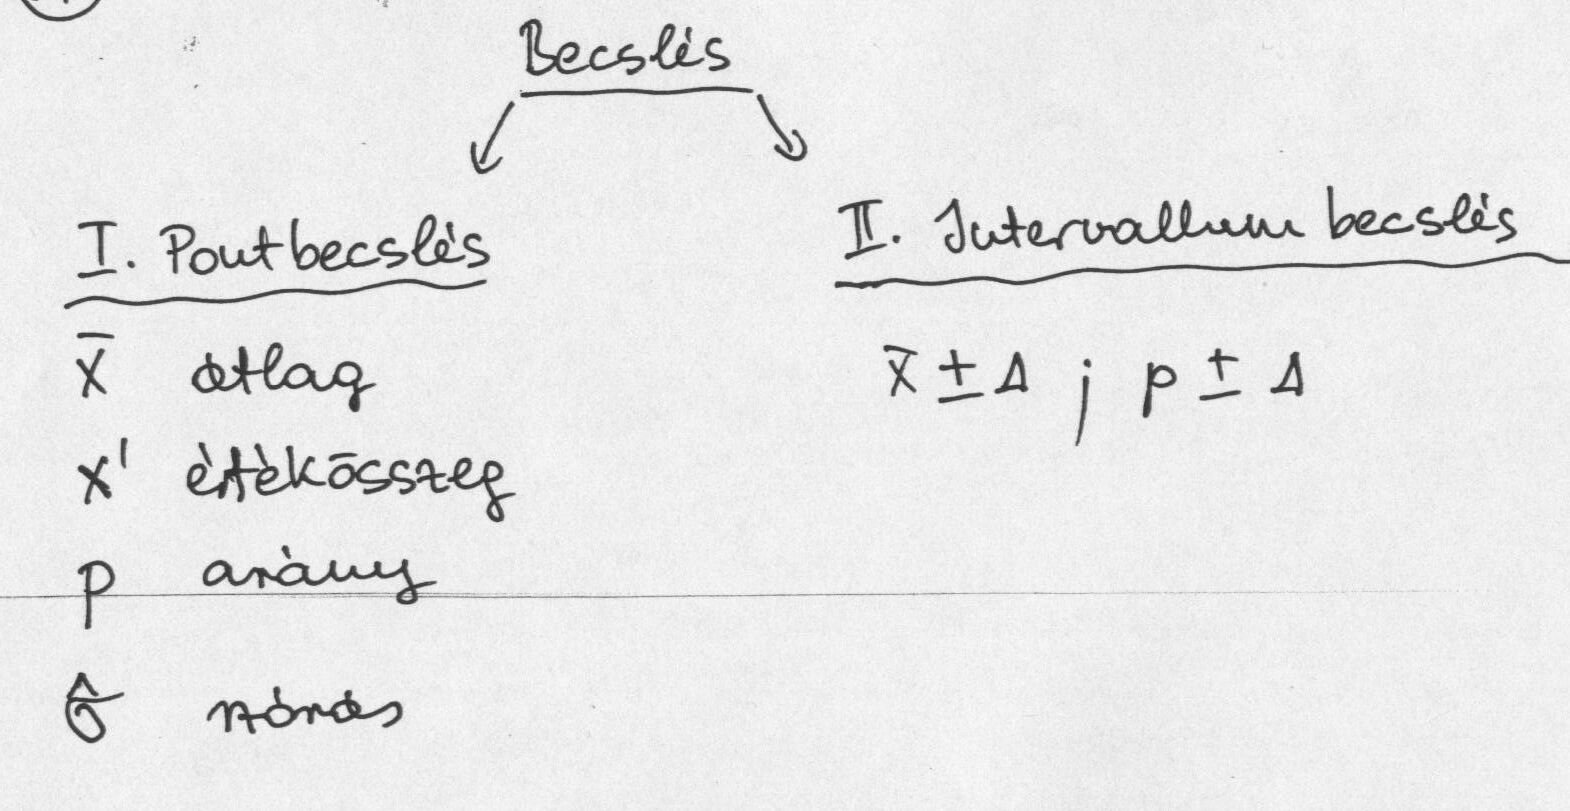 Becslés
I. Pontbecslés
x̄ átlag
x' értékösszeg
p arány
σ̂ szórás
II. Intervallum becslés
x̄ ± Δ ; p ± Δ